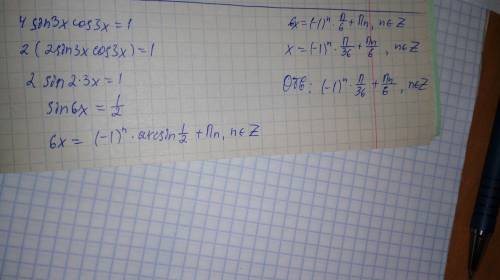 4 sin3x cos3x = 1
2 (2sin3x cos3x) = 1
2 sin2·3x = 1
sin6x = 1/2
6x = (-1)ⁿ · arcsin 1/2 + Пn, n∈Z
6x = (-1)ⁿ · П/6 + Пn, n∈Z
x = (-1)ⁿ · П/36 + Пn/6, n∈Z
Отв: (-1)ⁿ · П/36 + Пn/6, n∈Z